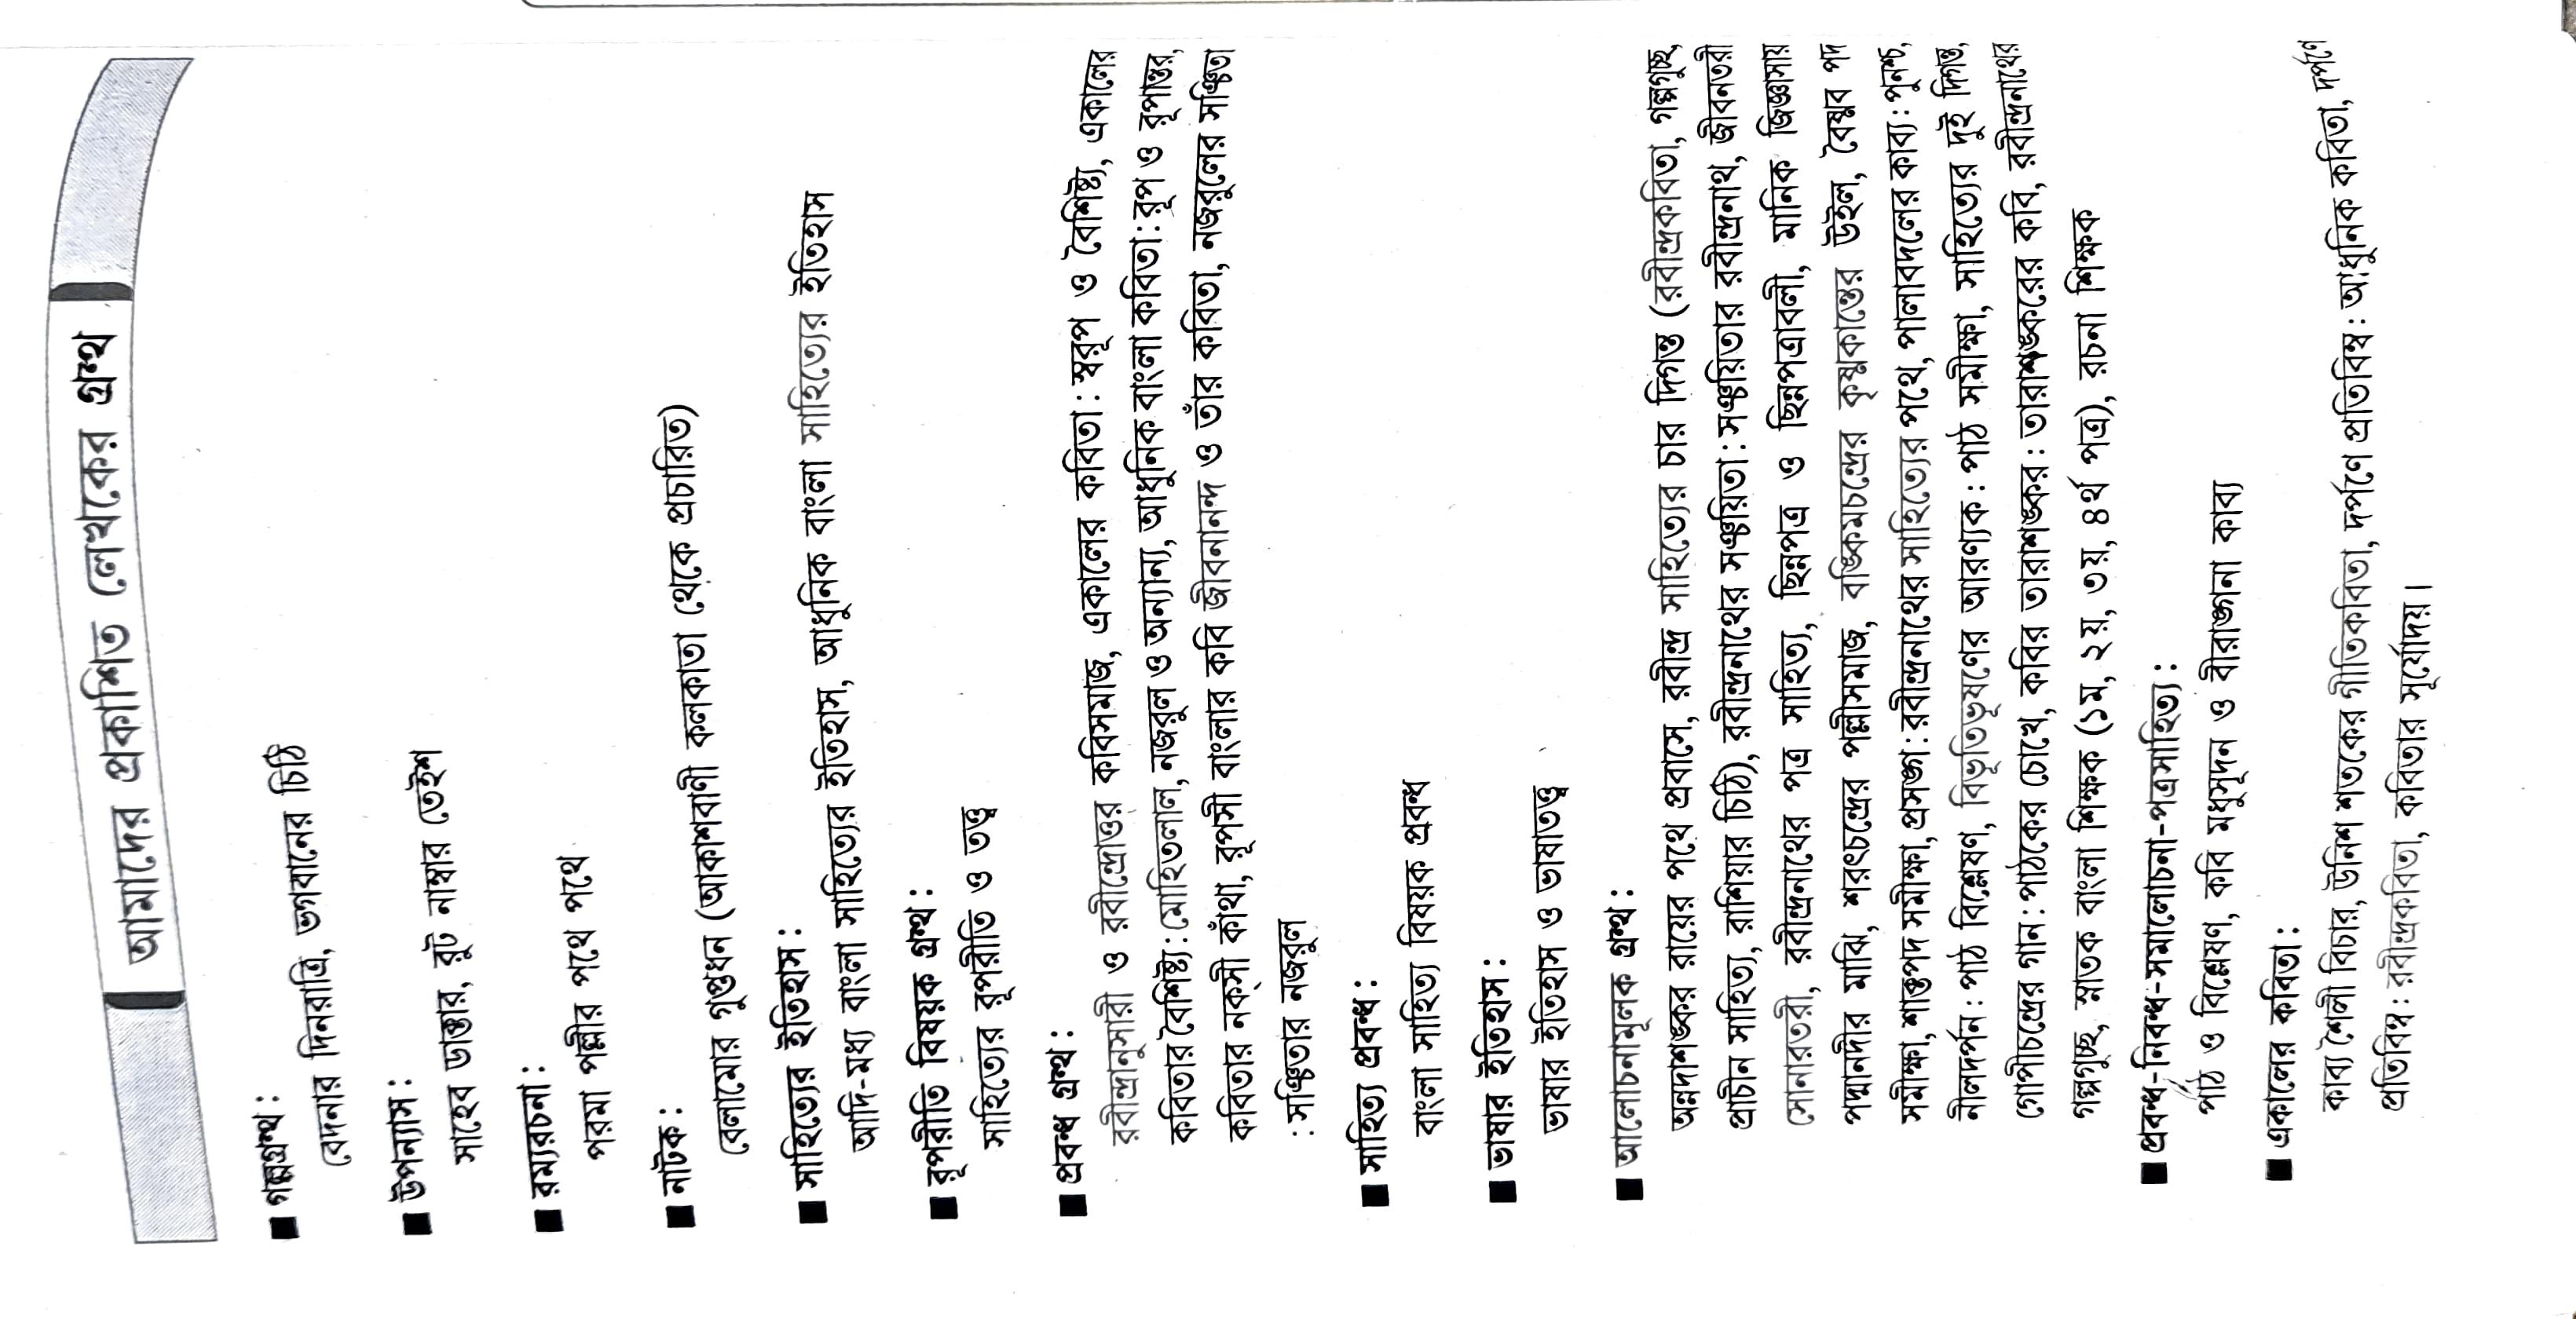 আমাদের প্রকাশিত লেখকের গ্রন্থ
■ গল্পগ্রন্থ :
বেদনার দিনরাত্রি, ভগবানের চিঠি
■ উপন্যাস :
সাহেব ডাক্তার, রুট নাম্বার তেইশ
■ রম্যরচনা :
পরমা পল্লীর পথে পথে
■ নাটক :
বেলামোর গুপ্তধন (আকাশবাণী কলকাতা থেকে প্রচারিত)
■ সাহিত্যের ইতিহাস :
আদি-মধ্য বাংলা সাহিত্যের ইতিহাস, আধুনিক বাংলা সাহিত্যের ইতিহাস
■ রূপরীতি বিষয়ক গ্রন্থ :
সাহিত্যের রূপরীতি ও তত্ত্ব
■ প্রবন্ধ গ্রন্থ :
রবীন্দ্রানুসারী ও রবীন্দ্রোত্তর কবিসমাজ, একালের কবিতা : স্বরূপ ও বৈশিষ্ট্য, একালের
কবিতার বৈশিষ্ট্য : মোহিতলাল, নজরুল ও অন্যান্য, আধুনিক বাংলা কবিতা : রূপ ও রূপান্তর,
কবিতার নকসী কাঁথা, রূপসী বাংলার কবি জীবনানন্দ ও তাঁর কবিতা, নজরুলের সঞ্চিতা
: সঞ্চিতার নজরুল
■ সাহিত্য প্রবন্ধ :
বাংলা সাহিত্য বিষয়ক প্রবন্ধ
■ ভাষার ইতিহাস :
ভাষার ইতিহাস ও ভাষাতত্ত্ব
■ আলোচনামূলক গ্রন্থ :
অন্নদাশঙ্কর রায়ের পথে প্রবাসে, রবীন্দ্র সাহিত্যের চার দিগন্ত (রবীন্দ্রকবিতা, গল্পগুচ্ছ,
প্রাচীন সাহিত্য, রাশিয়ার চিঠি), রবীন্দ্রনাথের সঞ্চয়িতা : সঞ্চয়িতার রবীন্দ্রনাথ, জীবনতরী
সোনারতরী, রবীন্দ্রনাথের পত্র সাহিত্য, ছিন্নপত্র ও ছিন্নপত্রাবলী, মানিক জিজ্ঞাসায়
পদ্মানদীর মাঝি, শরৎচন্দ্রের পল্লীসমাজ, বঙ্কিমচন্দ্রের কৃষ্ণকান্তের উইল, বৈষ্ণব পদ
সমীক্ষা, শাক্তপদ সমীক্ষা, প্রসঙ্গ : রবীন্দ্রনাথের সাহিত্যের পথে, পালাবদলের কাব্য : পুনশ্চ,
নীলদর্পন : পাঠ বিশ্লেষণ, বিভূতিভূষণের আরণ্যক : পাঠ সমীক্ষা, সাহিত্যের দুই দিগন্ত,
গোপীচন্দ্রের গান : পাঠকের চোখে, কবির তারাশঙ্কর : তারাশঙ্করের কবি, রবীন্দ্রনাথের
গল্পগুচ্ছ, স্নাতক বাংলা শিক্ষক (১ম, ২য়, ৩য়, ৪র্থ পত্র), রচনা শিক্ষক
■ প্রবন্ধ-নিবন্ধ-সমালোচনা-পত্রসাহিত্য :
পাঠ ও বিশ্লেষণ, কবি মধুসূদন ও বীরাঙ্গনা কাব্য
■ একালের কবিতা :
কাব্য শৈলী বিচার, উনিশ শতকের গীতিকবিতা, দর্পণে প্রতিবিম্ব : আধুনিক কবিতা, দর্পণে
প্রতিবিম্ব : রবীন্দ্রকবিতা, কবিতার সূর্যোদয়।